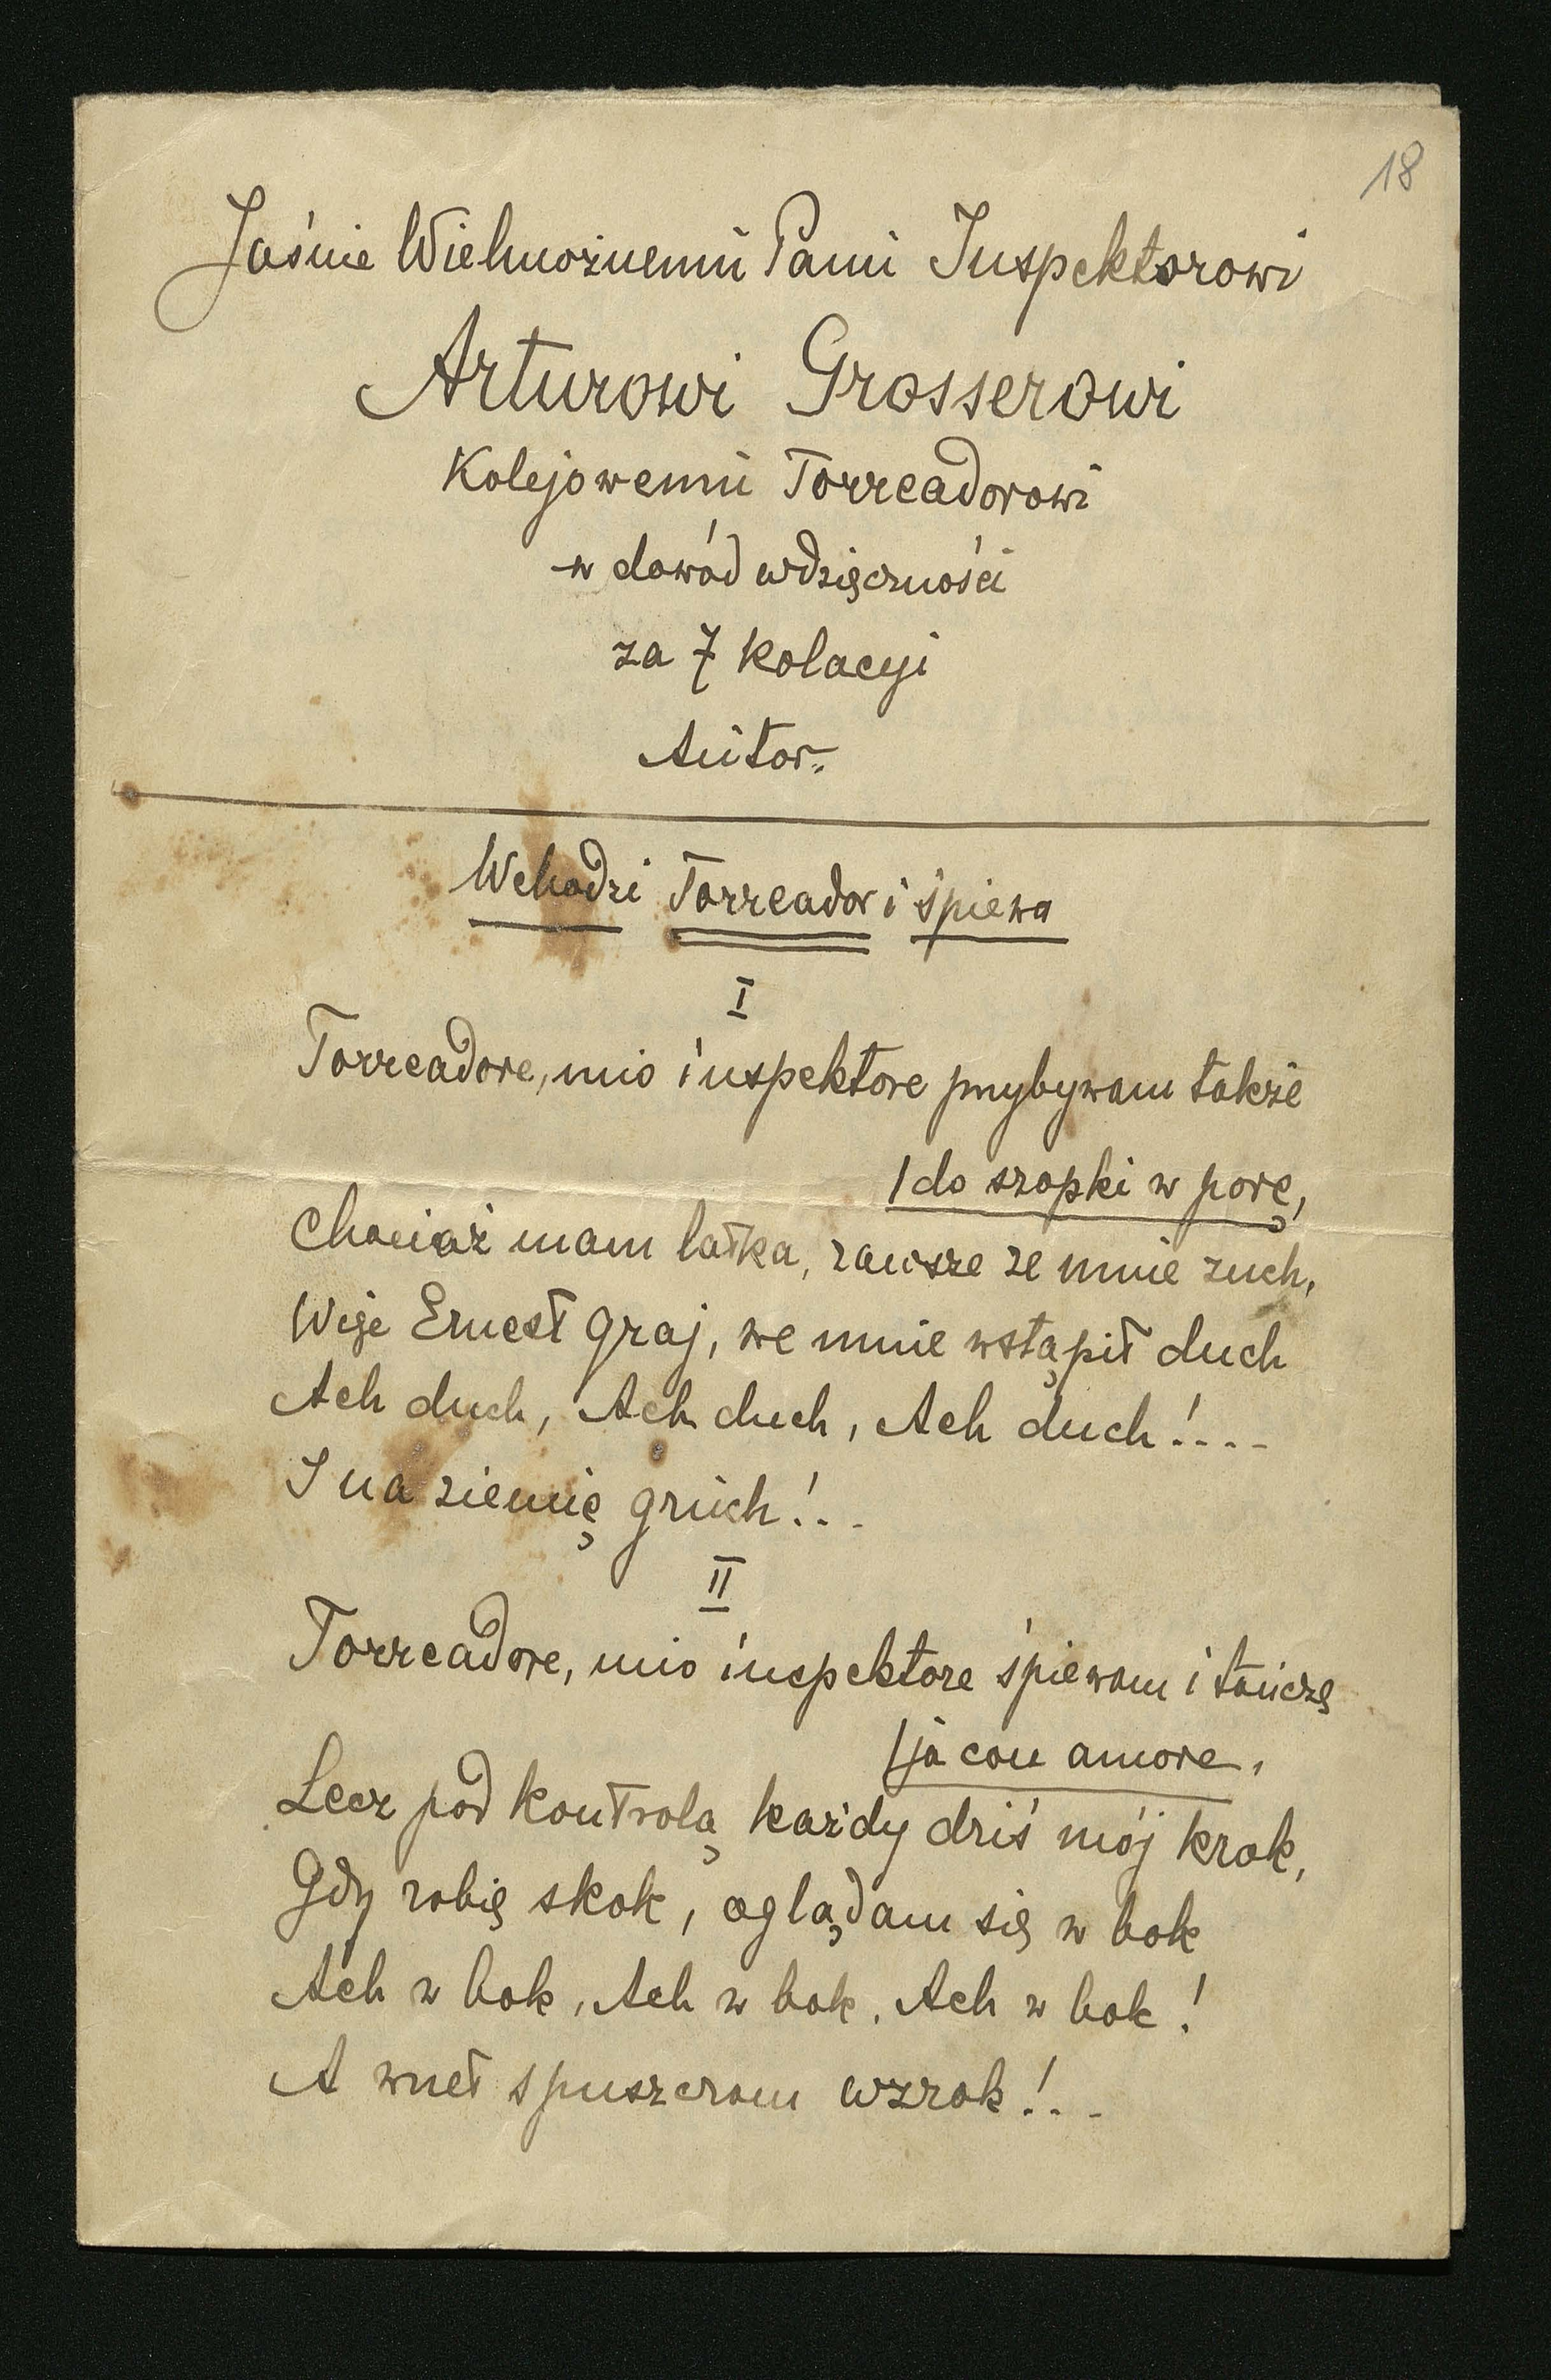 18
Jaśnie Wielmożnemu Panu Inspektorowi
Arturowi Grosserowi
Kolejowemu Torreadorowi
w dowód wdzięczności
za 7 kolacyi
Autor.
Wchodzi Torreador i śpiewa
I
Torreadore, mio inspektore przybywam także
/do szopki w porę,
Chociaż mam latka, zawsze ze mnie zuch,
Więc Ernest graj, we mnie wstąpił duch
Ach duch, Ach duch, Ach duch!....
I na ziemię gruch!...
II
Torreadore, mio inspektore śpiewam i tańczę
/ja con amore.
Lecz pod kontrolą każdy dziś mój krok,
Gdy robię skok, oglądam się w bok
Ach w bok, Ach w bok, Ach w bok!
A wnet spuszczam wzrok!...